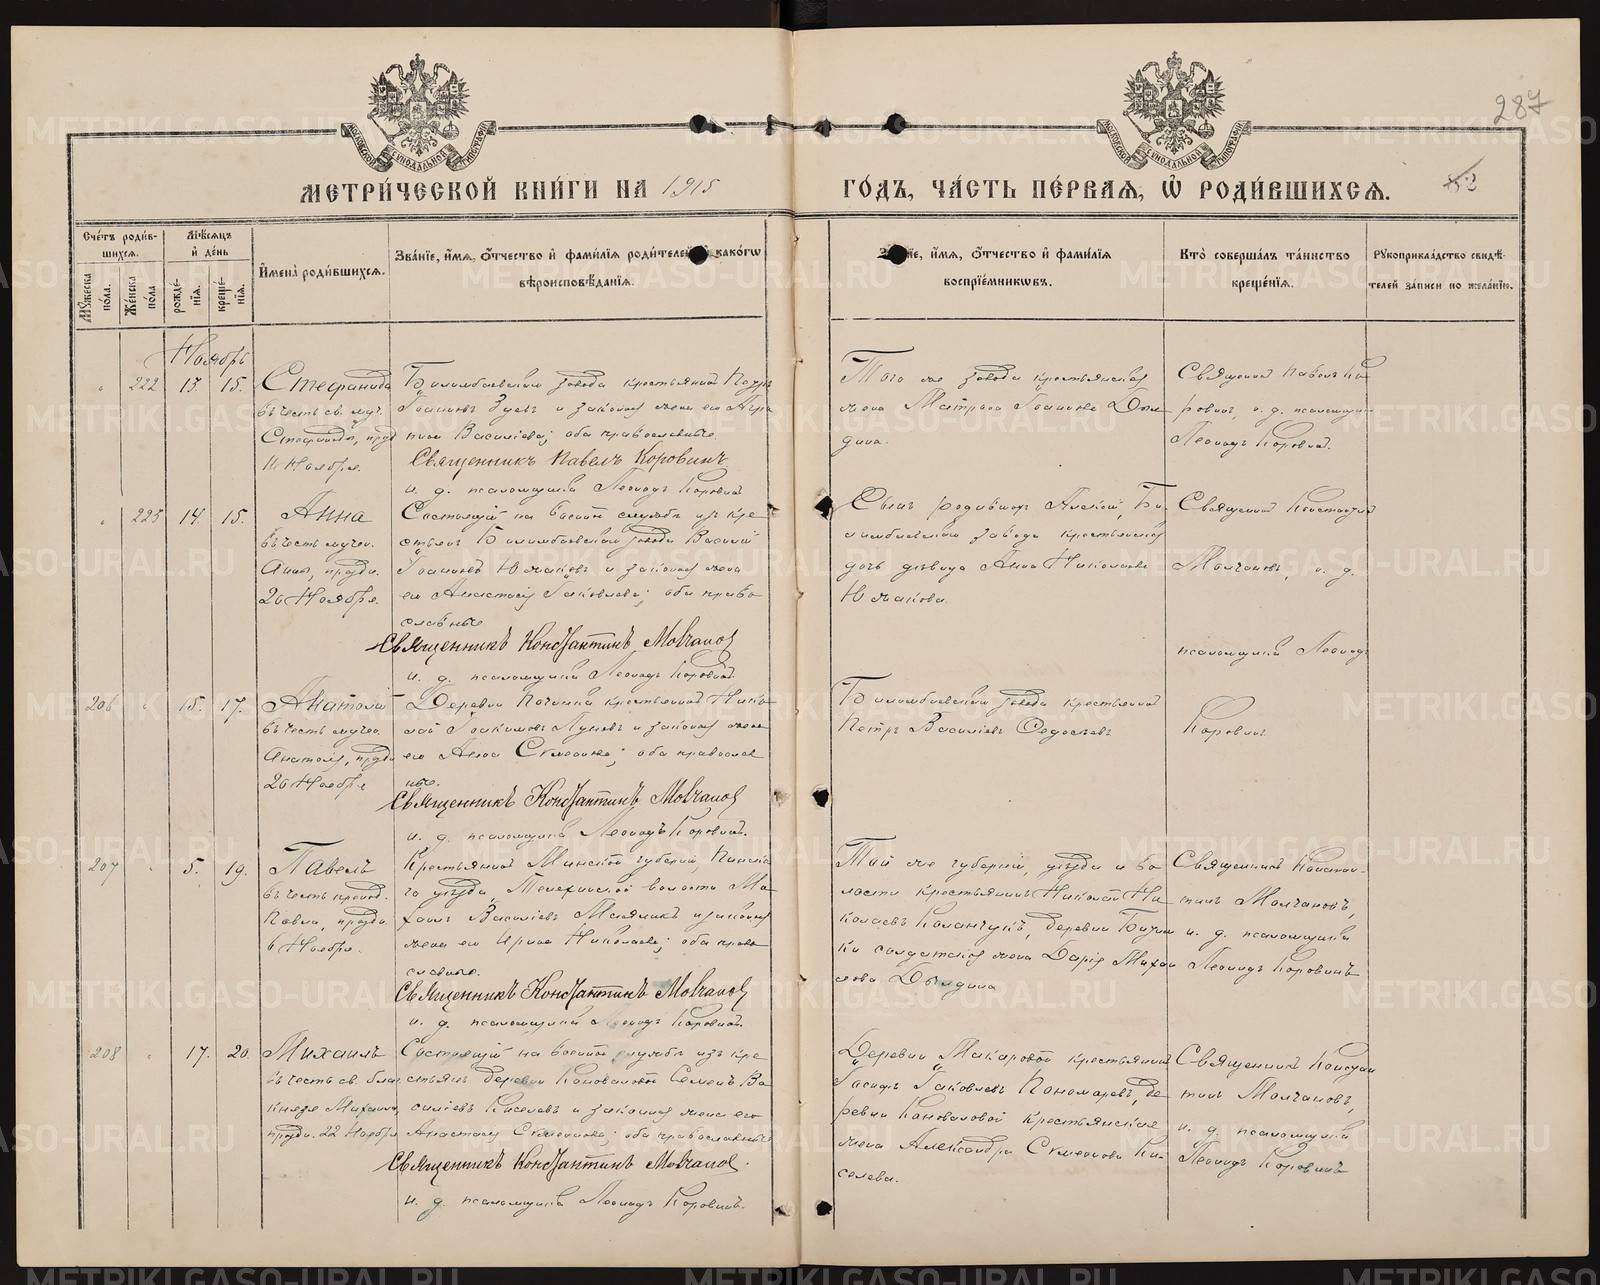 287
83
МЕТРИ́ЧЕСКОЙ КНИ́ГИ НА 1915 ГО́ДЪ, ЧА́СТЬ ПЕ́РВАѦ, Ѡ҆ РОДИ́ВШИХСѦ.
Сче́тъ роди́в-
шихсѧ.
Мꙋ́жеска по́ла.
Же́нска по́ла
Мѣ́сѧцъ и҆ де́нь
рожде́-
нїѧ.
креще́-
нїѧ.
И҆мена̀ роди́вшихсѧ.
Зва́нїе, и҆́мѧ, ѻ҆́тчество и҆ фами́лїѧ роди́телей како́гѡ
вѣроисповѣ́данїѧ.
и҆́мѧ, ѻ҆́тчество и҆ фами́лїѧ
воспрїе́мникѡвъ.
Кто̀ соверша́лъ та́инство
креще́нїѧ.
Рꙋкоприкла́дство свидѣ́-
телей за́писи по жела́нїю.
Ноябрь
" 222 13. 15. Стефанида
въ честь св. муч.
Стефаниды, празд.
11 Ноября.
Билимбаевскаго завода крестьянинъ Петръ
Іоанновъ Зуевъ и законная жена его
Васильева; оба православные.
Священникъ Павелъ Коровинъ
и. д. псаломщика Леонидъ Коровинъ
Того же завода крестьянская
жена Матрона Іоаннова Дыл-
дина.
Священникъ Павелъ Ко-
ровинъ, и. д. псаломщика
Леонидъ Коровинъ.
" 223 14. 15. Анна
въ честь мучен.
Анны, празд.
20 Ноября.
Состоящій на военной службѣ изъ кре-
стьянъ Билимбаевскаго завода Василій
Іоанновъ Южаковъ и законная жена
его Анастасія Іаковлева; оба право-
славные
Священникъ Константинъ Молчановъ
и. д. псаломщика Леонидъ Коровинъ.
Сынъ Алексій, Би-
лимбаевскаго завода крестьянская
дочь дѣвица Анна Николаева
Южакова.
Священникъ Константинъ
Молчановъ, и. д.
псаломщика Леонидъ
Коровинъ.
206 " 15. 17. Анатолій
въ честь мучен.
Анатолія, празд.
20 Ноября
Деревни крестьянинъ Нико-
лай Іоакимовъ и законная жена
его Анна Симеонова; оба православ-
ные.
Священникъ Константинъ Молчановъ
и. д. псаломщика Леонидъ Коровинъ.
Билимбаевскаго завода крестьянинъ
Петръ Василіевъ Ѳедосѣевъ
207 " 5. 19. Павелъ
въ честь препод.
Павла, празд.
6 Ноября.
Крестьянинъ Минской губерніи, Пинска-
го уѣзда, Телеханской волости Ми-
хаилъ Василіевъ и законная
жена его Ирина Николаева; оба право-
славные.
Священникъ Константинъ Молчановъ
и. д. псаломщика Леонидъ Коровинъ.
Той же губерніи, уѣзда и во-
лости крестьянинъ Николай Ни-
колаевъ деревни
ки солдатская жена Дарія Михаи-
лова Дылдина
Священникъ Констан-
тинъ Молчановъ,
и. д. псаломщика
Леонидъ Коровинъ
208 " 17. 20. Михаилъ
въ честь св. благ.
Князя Михаила,
празд. 22 Ноября
Состоящій на военной службѣ изъ кре-
стьянъ деревни Коноваловой Семенъ Ва-
силіевъ Киселевъ и законная жена его
Анастасія Симеонова; оба православные
Священникъ Константинъ Молчановъ.
и. д. псаломщика Леонидъ Коровинъ.
Деревни Макаровой крестьянинъ
Іосифъ Іаковлевъ Пономаревъ, де-
ревни Коноваловой крестьянская
жена Александра Симеонова Ки-
селева.
Священникъ Констан-
тинъ Молчановъ,
и. д. псаломщика
Леонидъ Коровинъ
METRIKI.GASO-URAL.RU